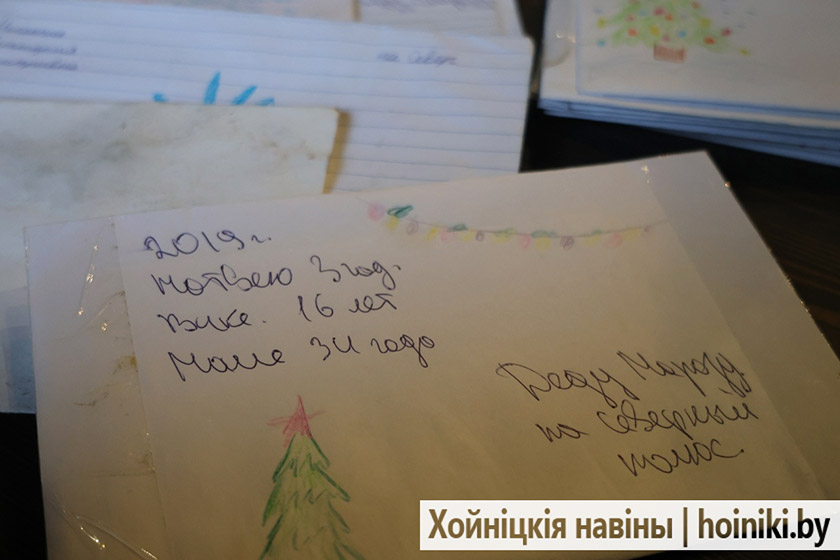 на Север
2019 г.
Матвею 3 год.
Вике. 16 лет
Маме 34 года
Деду Морозу
на северный
полюс.
Хойніцкія навіны | hoiniki.by